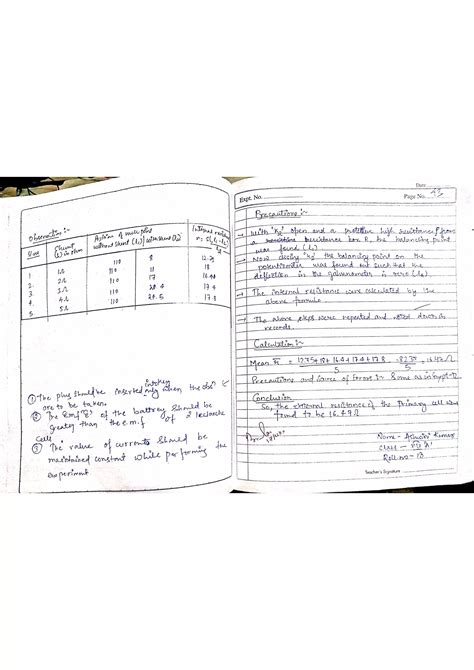 Observation :-
S.No
Shunt (s) in ohm
Position of null point
without shunt (l1)
with shunt (l2)
Internal resistance
1 1Ω 110 8 12.75
2. 2Ω 110 11 18
3. 3Ω 110 17
4. 4Ω 110 20.4 17.4
5. 5Ω 110 24.5 17.8
① The plug should be inserted in the key
only when the obs
are to be taken.
② The E.m.f 'E' of the battery should be
greater than the e.m.f of 2 leclanche
cells
③ The value of currents should be
maintained constant while performing the
experiment
Date
Expt. No.
Page No. 43
Precautions :-
→ With "K2" open and a protective high resistance from
a resistance box R, the balancing point
was found (l1)
→ Now closing "K2" the balancing point on the
potentiometer was found out such that the
deflection in the galvanometer is zero (l2)
→ The internal resistance were calculated by the
above formula
→ The above steps were repeated and noted down in
records.
Calculation :-
Mean R = 12.75+18+16.4+17.4+17.8
5
5
Precautions and source of Errors :- Same as in expt-
Conclusion
So, the internal resistance of the Primary cell was
found to be 16.49Ω
Name - Kumar
Class -
Roll no - 13
Teacher's Signature